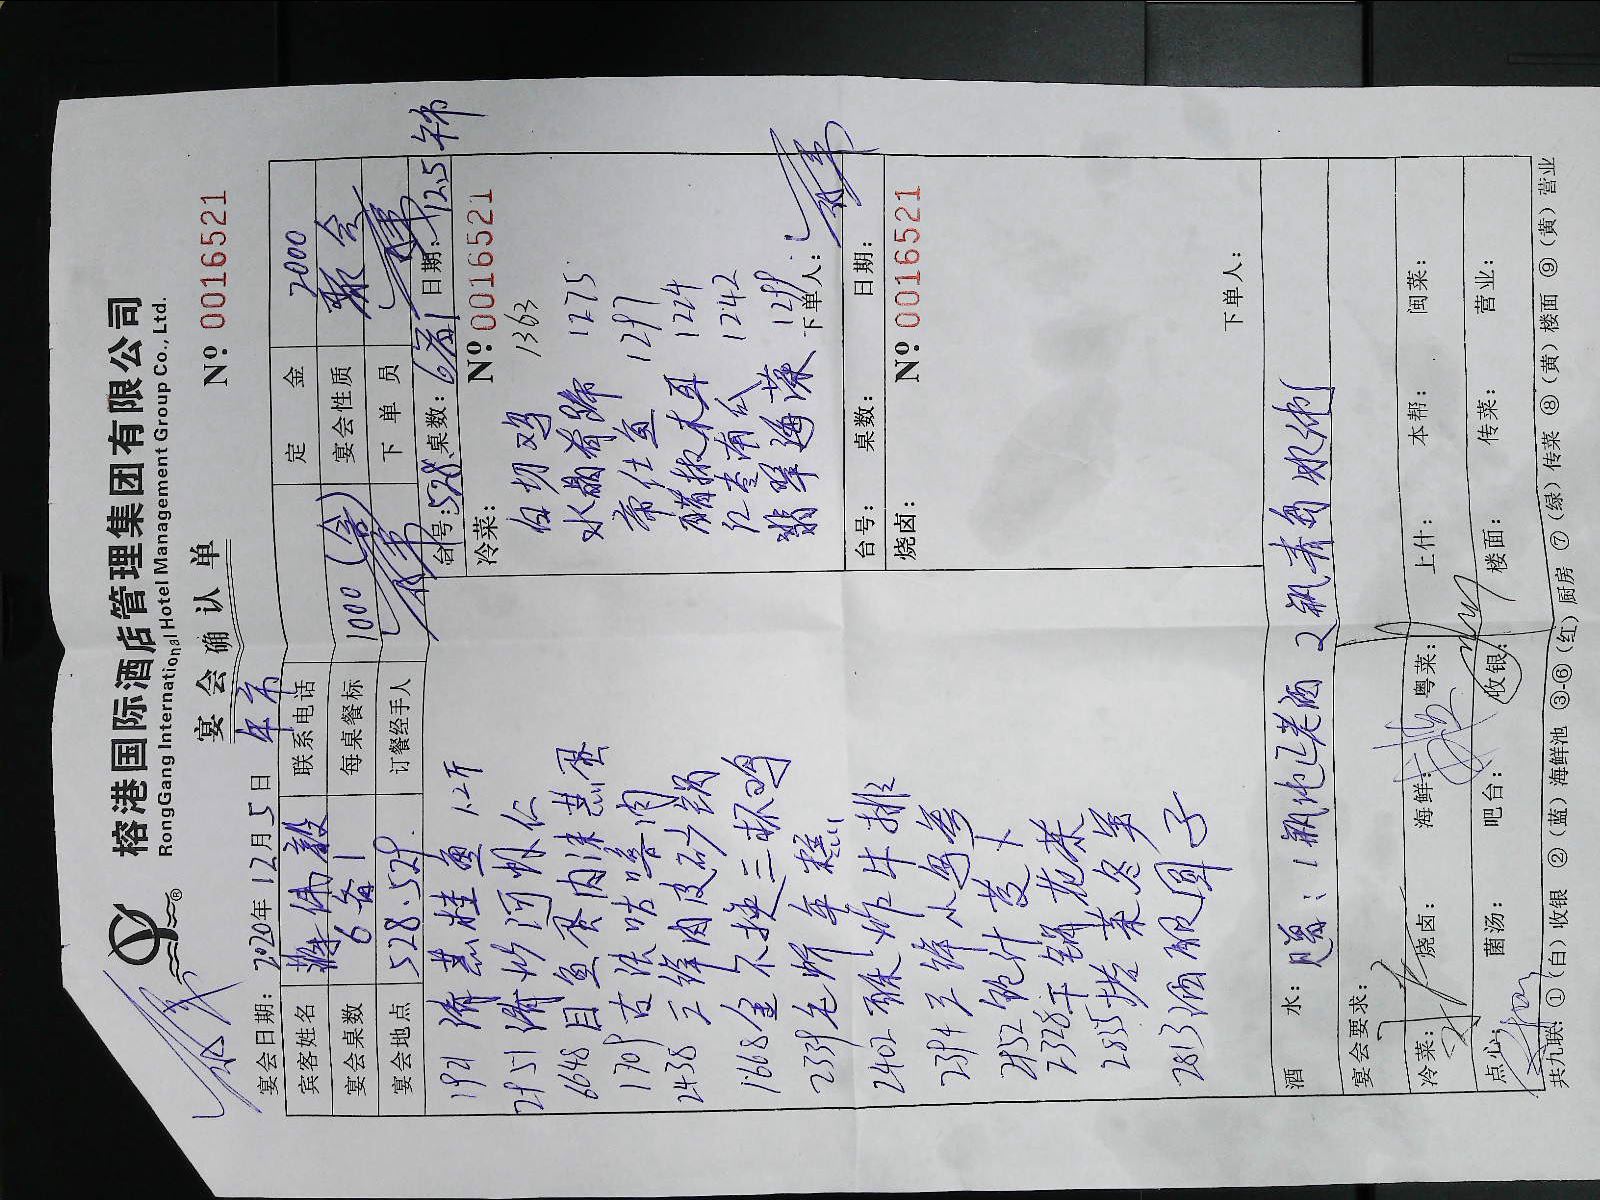 榕港国际酒店管理集团有限公司
RongGang International Hotel Management Group Co., Ltd.
宴会确认单
Nº 0016521
宴会日期：2020年12月5日
宾客姓名 联系电话 定金 2000
宴会桌数 6备1 每桌餐标 1000（含） 宴会性质 聚会
宴会地点 528.529 订餐经手人 下单员
台号：528 桌数：6备1 日期：12.5
冷菜： Nº 0016521
白切鸡 1363
水晶肴蹄 1275
1297
木耳 1224
南瓜 1242
翡翠海藻 1291
下单人：
台号： 桌数： 日期：
烧卤： Nº 0016521
下单人：
1921 清蒸桂鱼 1.2斤
2951 清炒河虾仁
6648 目鱼蛋肉沫蒸蛋
1709 古法咕噜肉
2438 三鲜肉皮砂锅
1668 全不换三杯鸡
2339 毛蟹年糕
2402 酥炸牛排
2394
2452 鲍汁
2328 干锅花菜
2835 塔菜冬笋
2813 酒酿圆子
酒水： 1瓶 老酒 2瓶青岛冰纯
宴会要求：
冷菜： 烧卤： 海鲜： 粤菜： 上什： 本帮： 闽菜：
点心： 菌汤： 吧台： 收银： 楼面： 传菜： 营业：
共九联：①（白）收银 ②（蓝）海鲜池 ③-⑥（红）厨房 ⑦（绿）传菜 ⑧（黄）楼面 ⑨（黄）营业